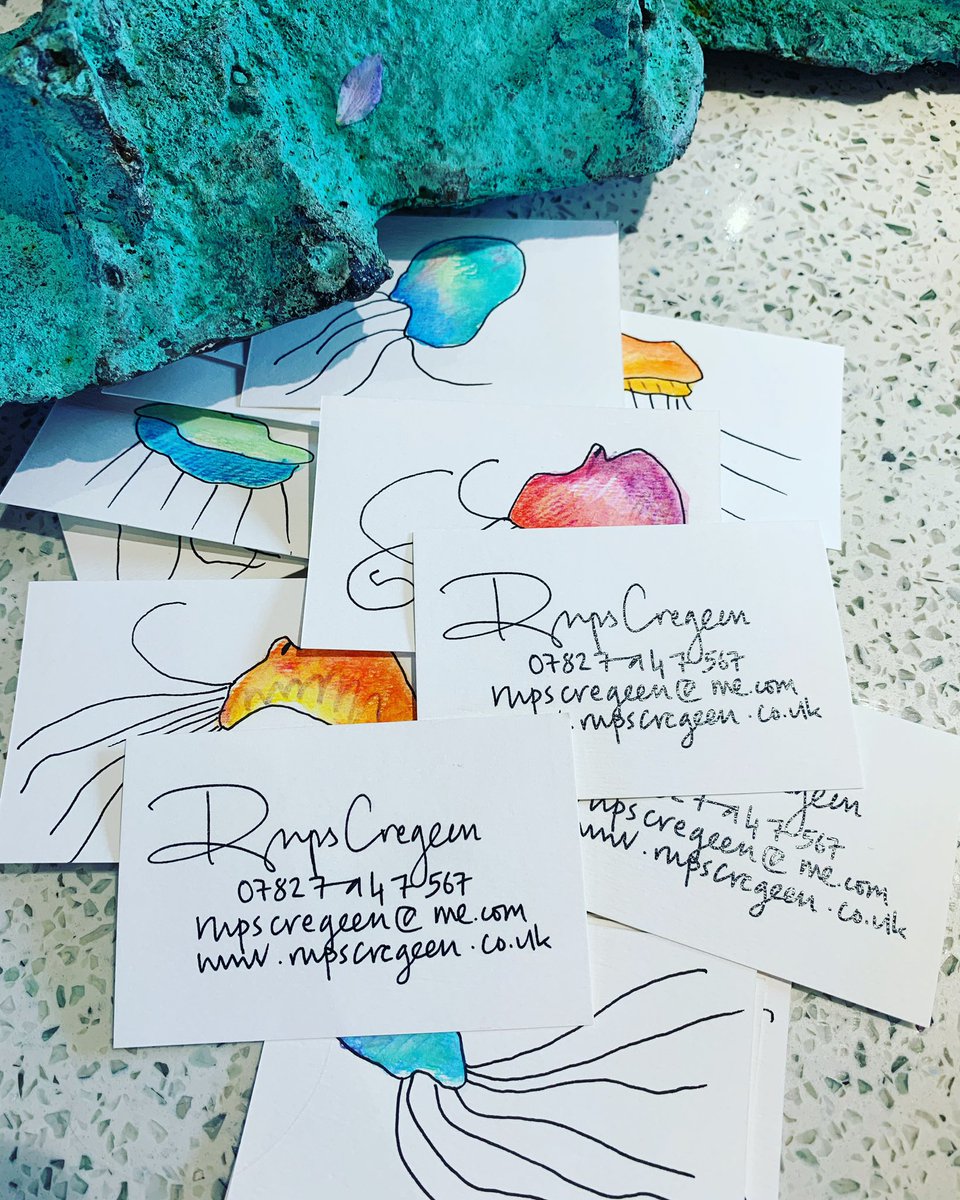 Rups Cregeen
07827 147 567
rupscregeen@me.com
.rupscregeen.co.uk
Rups Cregeen
07827 147 567
rupscregeen@me.com
www.rupscregeen.co.uk
geen
7 147 567
upscregeen@me.com
www.rupscregeen.co.uk